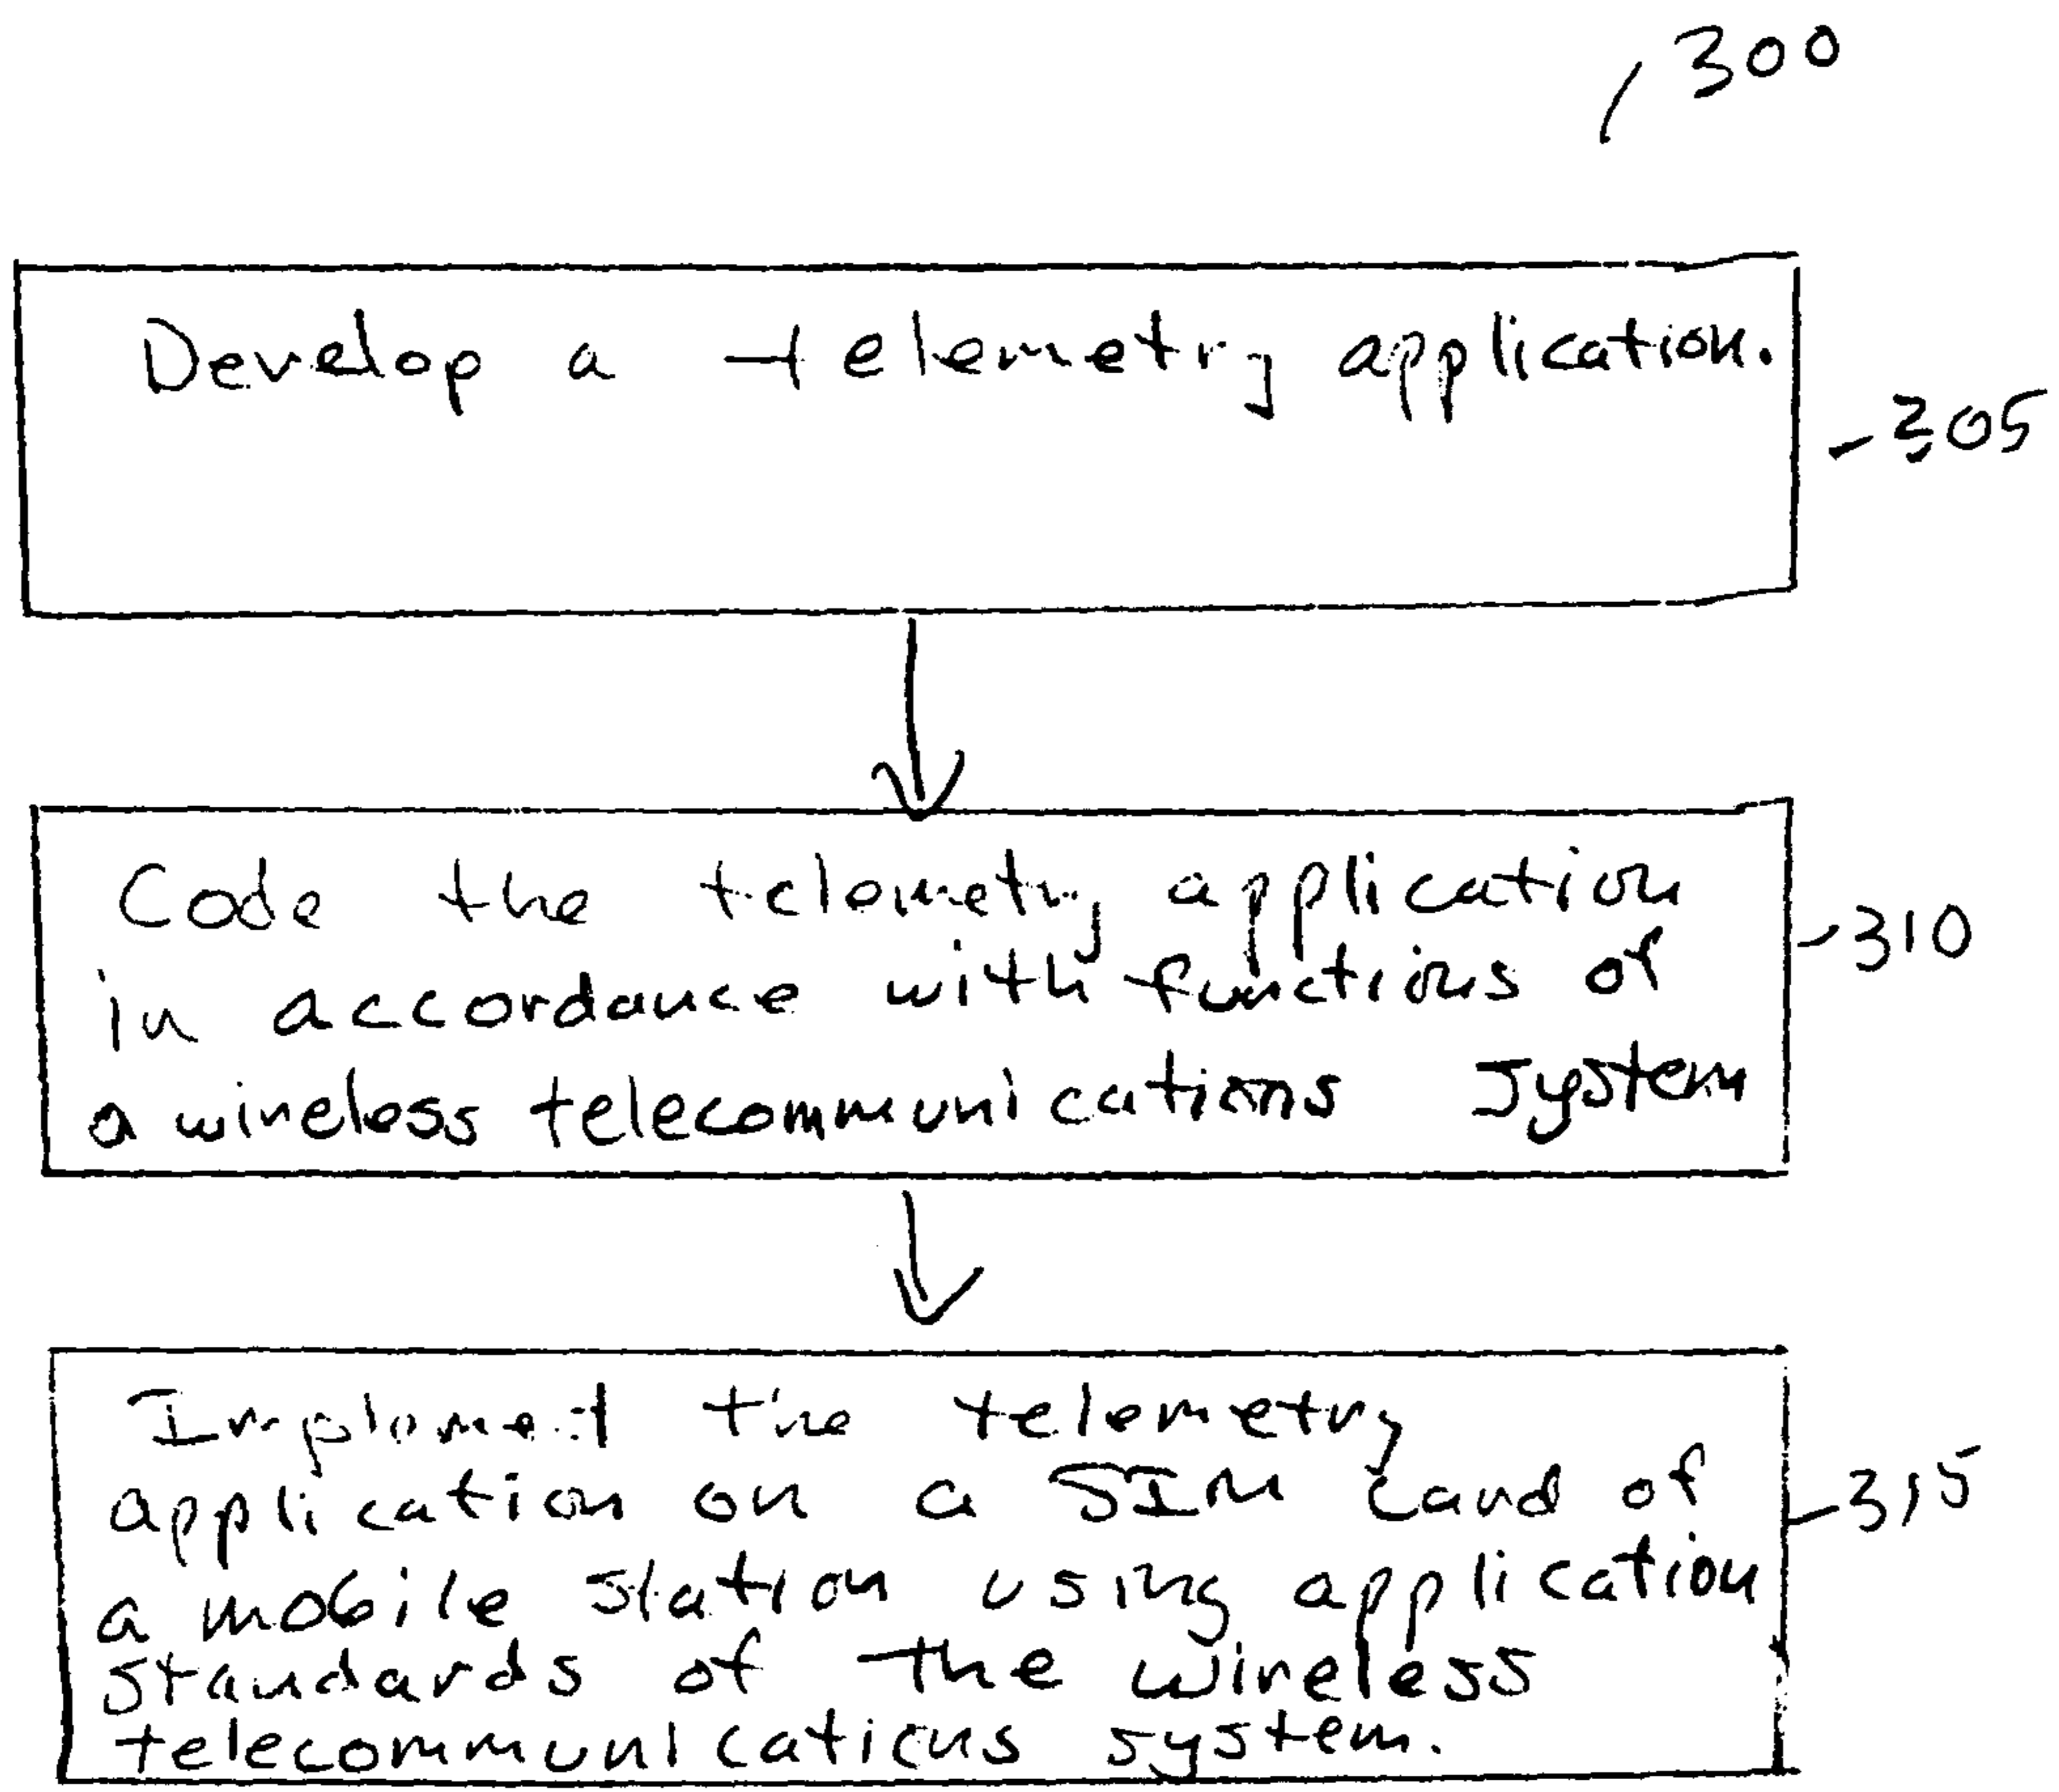 300
Develop a telemetry application.
305
Code the telemetry application
in accordance with functions of
a wireless telecommunications system
310
Implement the telemetry
application on a SIM card of
a mobile station using application
standards of the wireless
telecommunications system.
315